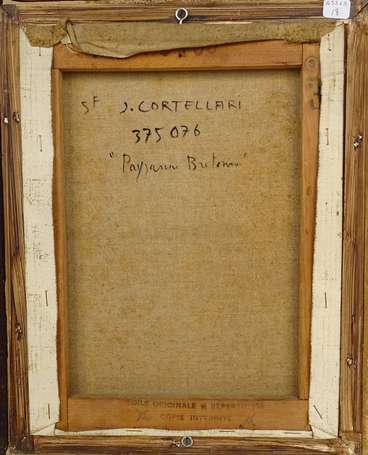 5F J. CORTELLARI
375076
"Paysanne Bretonne"
TOILE ORIGINALE
COPIE INTERDITE
18